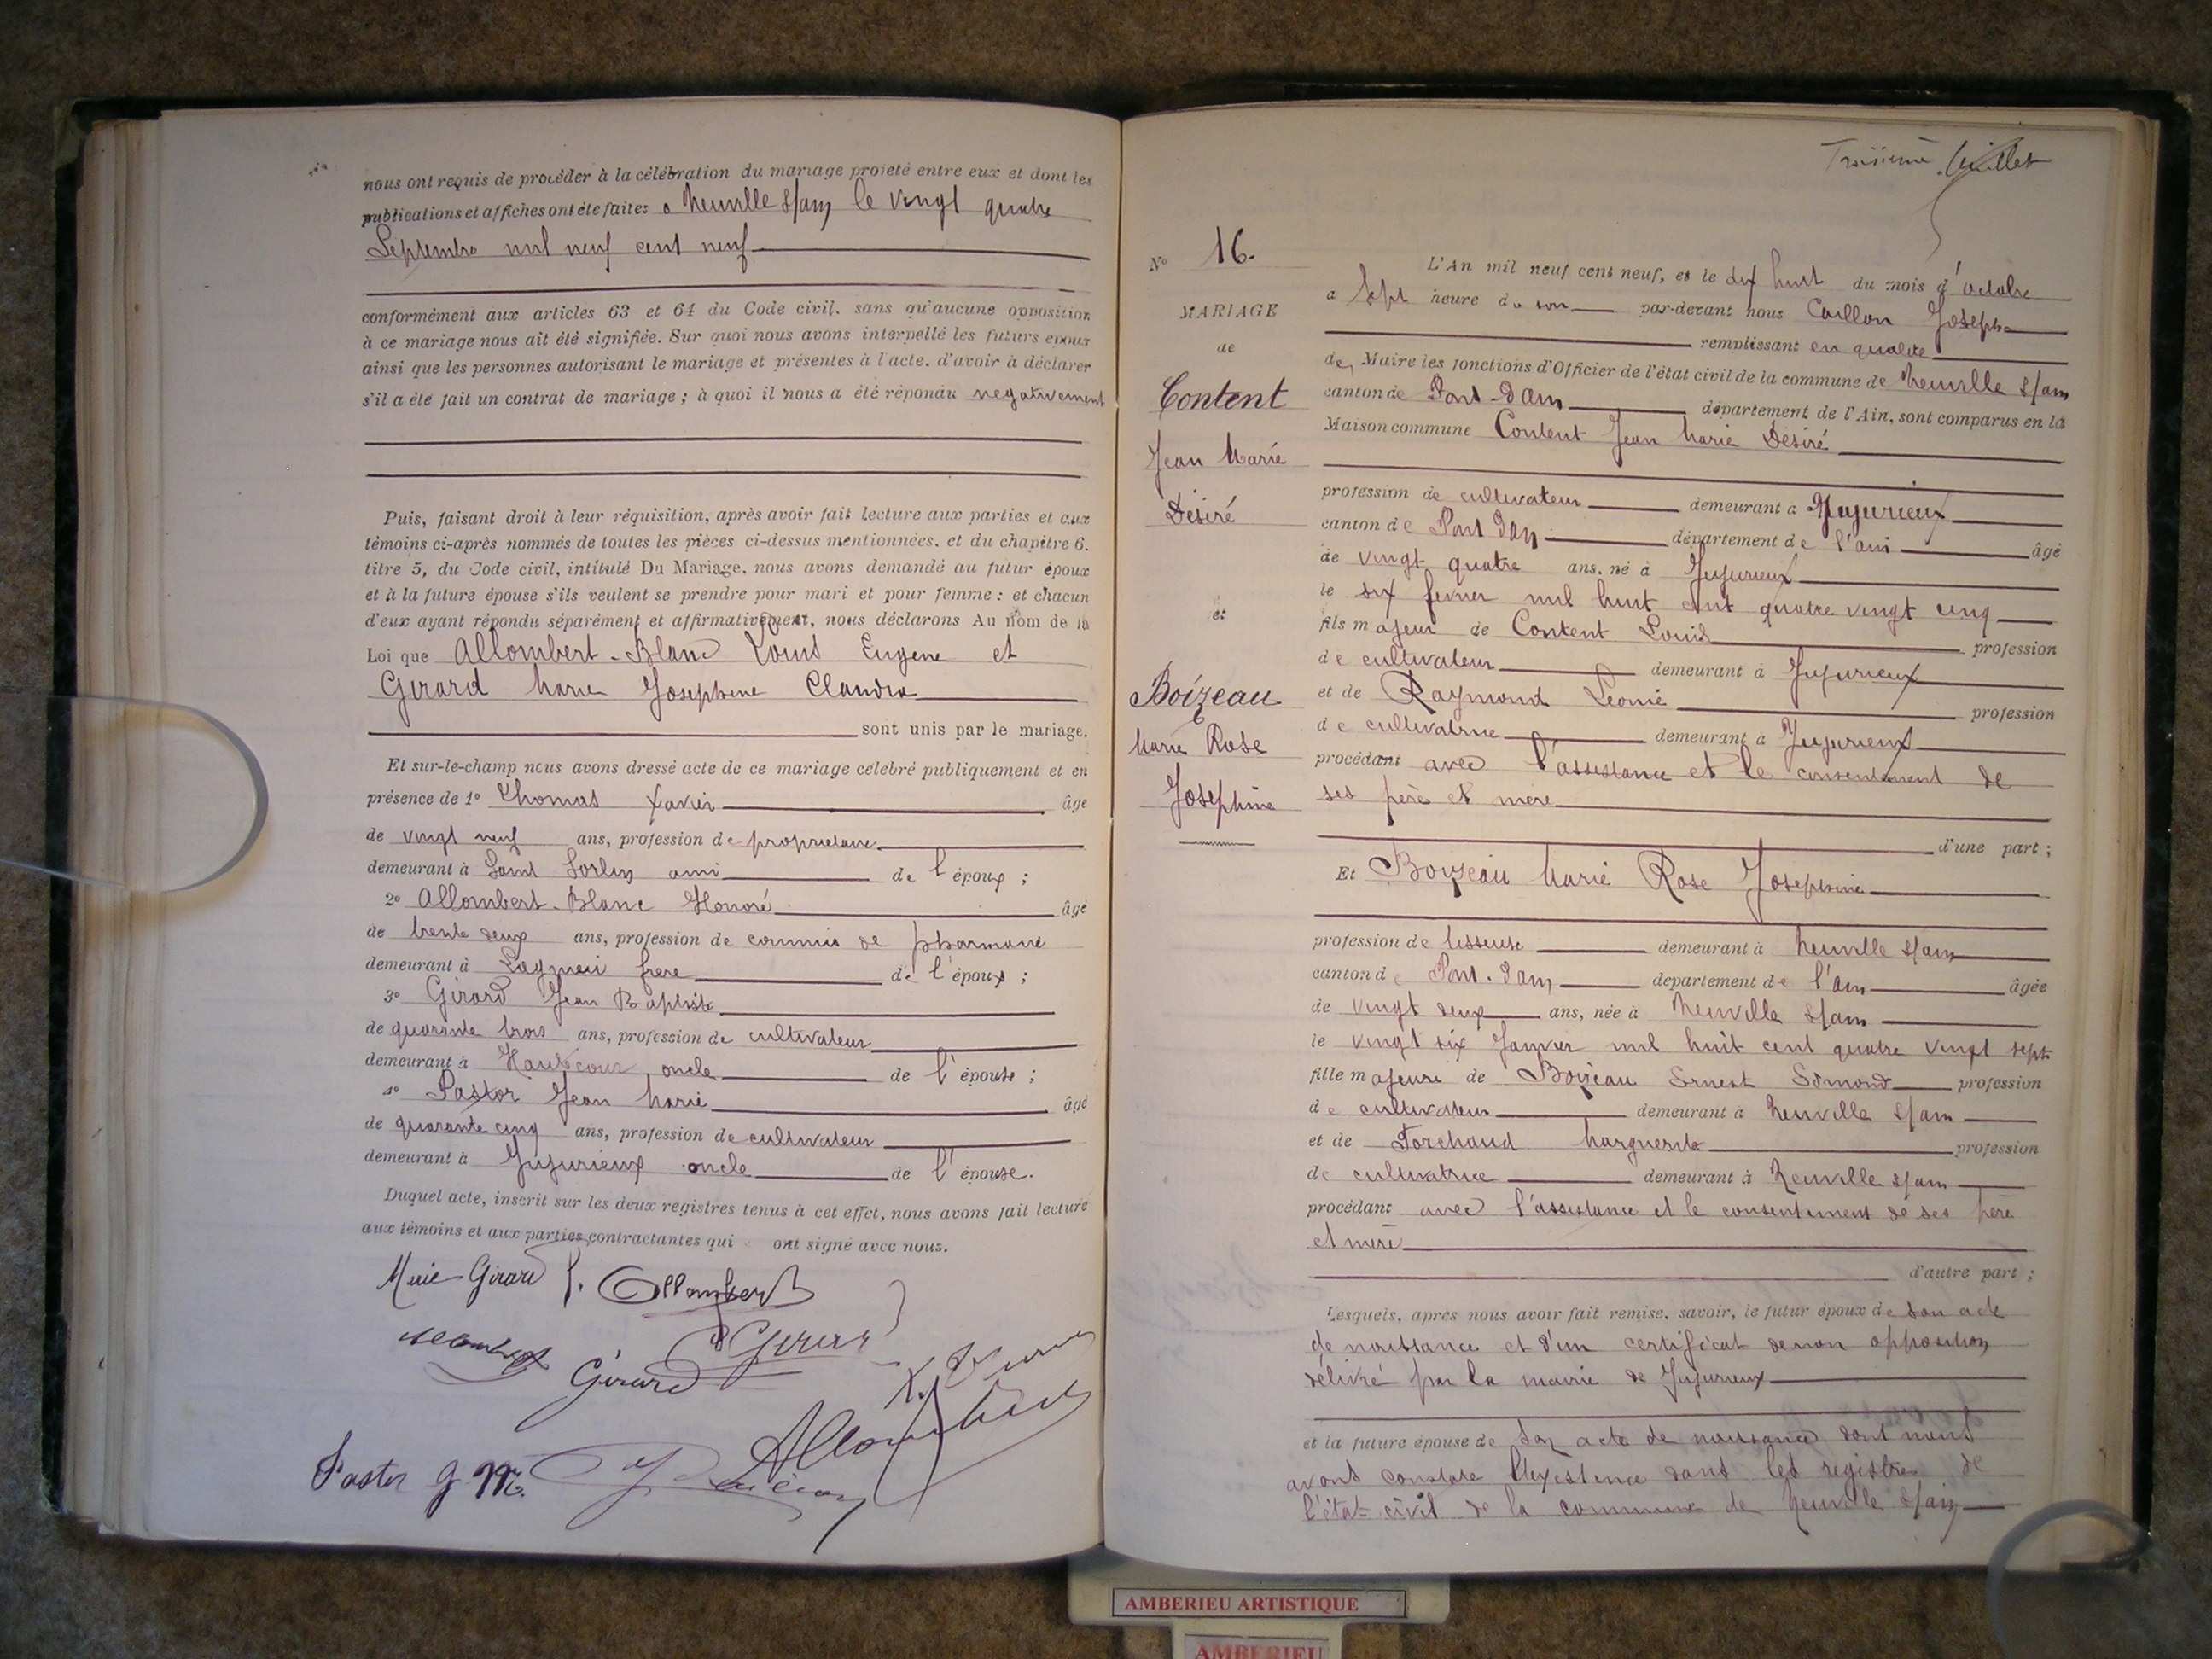 nous ont requis de procéder à la célébration du mariage projeté entre eux et dont les
publications et affiches ont été faites a Neuville s/ain le vingt quatre
Septembre mil neuf cent neuf
conformément aux articles 63 et 64 du Code civil, sans qu'aucune opposition
à ce mariage nous ait été signifiée. Sur quoi nous avons interpellé les futurs époux
ainsi que les personnes autorisant le mariage et présentes à l'acte, d'avoir à déclarer
s'il a été fait un contrat de mariage ; à quoi il nous a été répondu negativement
Puis, faisant droit à leur réquisition, après avoir fait lecture aux parties et aux
témoins ci-après nommés de toutes les pièces ci-dessus mentionnées, et du chapitre 6,
titre 5, du Code civil, intitulé Du Mariage, nous avons demandé au futur époux
et à la future épouse s'ils veulent se prendre pour mari et pour femme : et chacun
d'eux ayant répondu séparément et affirmativement, nous déclarons Au nom de la
Loi que Allombert-Blanc Louis Eugene et
Girard Marie Josephine Claudia
sont unis par le mariage.
Et sur-le-champ nous avons dressé acte de ce mariage célébré publiquement et en
présence de 1° Thomas Xavier âgé
de vingt neuf ans, profession de proprietaire
demeurant à Saint Sorlin ami de l'époux ;
2° Allombert-Blanc Honoré âgé
de trente deux ans, profession de commis de pharmacie
demeurant à Lagnieu frere de l'époux ;
3° Girard Jean Baptiste
de quarante trois ans, profession de cultivateur
demeurant à Hautecour oncle de l'épouse ;
4° Pastor Jean Marie âgé
de quarante cinq ans, profession de cultivateur
demeurant à Jujurieux oncle de l'épouse.
Duquel acte, inscrit sur les deux registres tenus à cet effet, nous avons fait lecture
aux témoins et aux parties contractantes qui ont signé avec nous.
Marie Girard Allombert
Girard
Girard
Allombert
Pastor J M.
Troisième feuillet
N° 16.
MARIAGE
de
Content
Jean Marie
Désiré
et
Boizeau
Marie Rose
Josephine
L'An mil neuf cent neuf, et le dix huit du mois d'octobre
à sept heure du soir par-devant nous Caillon Joseph
remplissant en qualité
de Maire les fonctions d'Officier de l'état civil de la commune de Neuville s/ain
canton de Pont-Dain département de l'Ain, sont comparus en la
Maison commune Content Jean Marie Désiré
profession de cultivateur demeurant à Jujurieux
canton de Pont Dain département de l'ain âgé
de vingt quatre ans, né à Jujurieux
le six fevrier mil huit cent quatre vingt cinq
fils majeur de Content Louis profession
de cultivateur demeurant à Jujurieux
et de Raymond Leonie profession
de cultivatrice demeurant à Jujurieux
procédant avec l'assistance et le consentement de
ses père et mère
d'une part ;
Et Boizeau Marie Rose Josephine
profession de tisseuse demeurant à Neuville s/ain
canton de Pont-Dain département de l'ain âgée
de vingt deux ans, née à Neuville s/ain
le vingt six Janvier mil huit cent quatre vingt sept
fille majeure de Boizeau Ernest Edmond profession
de cultivateur demeurant à Neuville s/ain
et de Forchaud Marguerite profession
de cultivatrice demeurant à Neuville s/ain
procédant avec l'assistance et le consentement de ses père
et mère
d'autre part ;
Lesquels, après nous avoir fait remise, savoir, le futur époux de son acte
de naissance et d'un certificat de non opposition
délivré par la mairie de Jujurieux
et la future épouse de son acte de naissance dont nous
avons constaté l'existence dans les registres de
l'état-civil de la commune de Neuville s/ain
AMBERIEU ARTISTIQUE
AMBERIEU